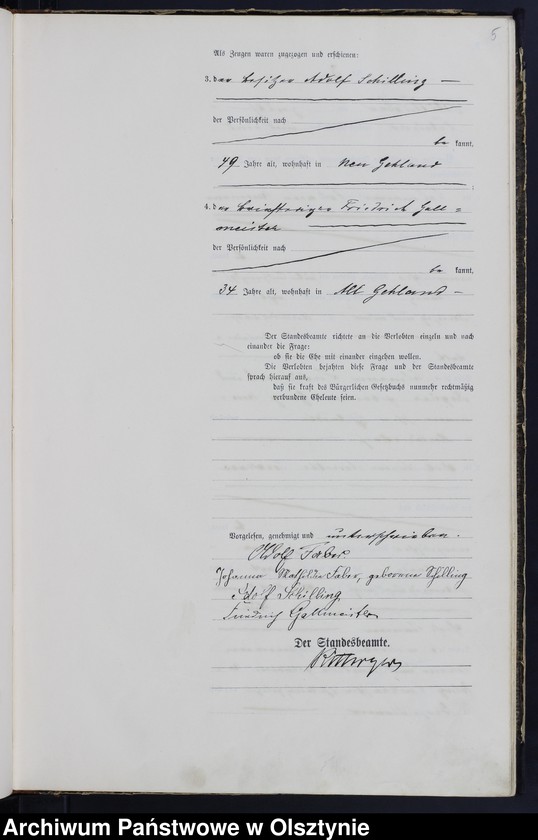 5
Als Zeugen waren zugezogen und erschienen:
3. der Besitzer Adolf Schilling —
der Persönlichkeit nach
be kannt,
49 Jahre alt, wohnhaft in Neu Gehland
;
4. der Friedrich Gall=
meister
der Persönlichkeit nach
be kannt,
34 Jahre alt, wohnhaft in Alt Gehland —
Der Standesbeamte richtete an die Verlobten einzeln und nach
einander die Frage:
ob sie die Ehe mit einander eingehen wollen.
Die Verlobten bejahten diese Frage und der Standesbeamte
sprach hierauf aus,
daß sie kraft des Bürgerlichen Gesetzbuchs nunmehr rechtmäßig
verbundene Eheleute seien.
Vorgelesen, genehmigt und unterschrieben.
Adolf Faber
Johanna Mathilde Faber, geborene Schilling
Adolf Schilling
Friedrich Gallmeister
Der Standesbeamte.
Archiwum Państwowe w Olsztynie